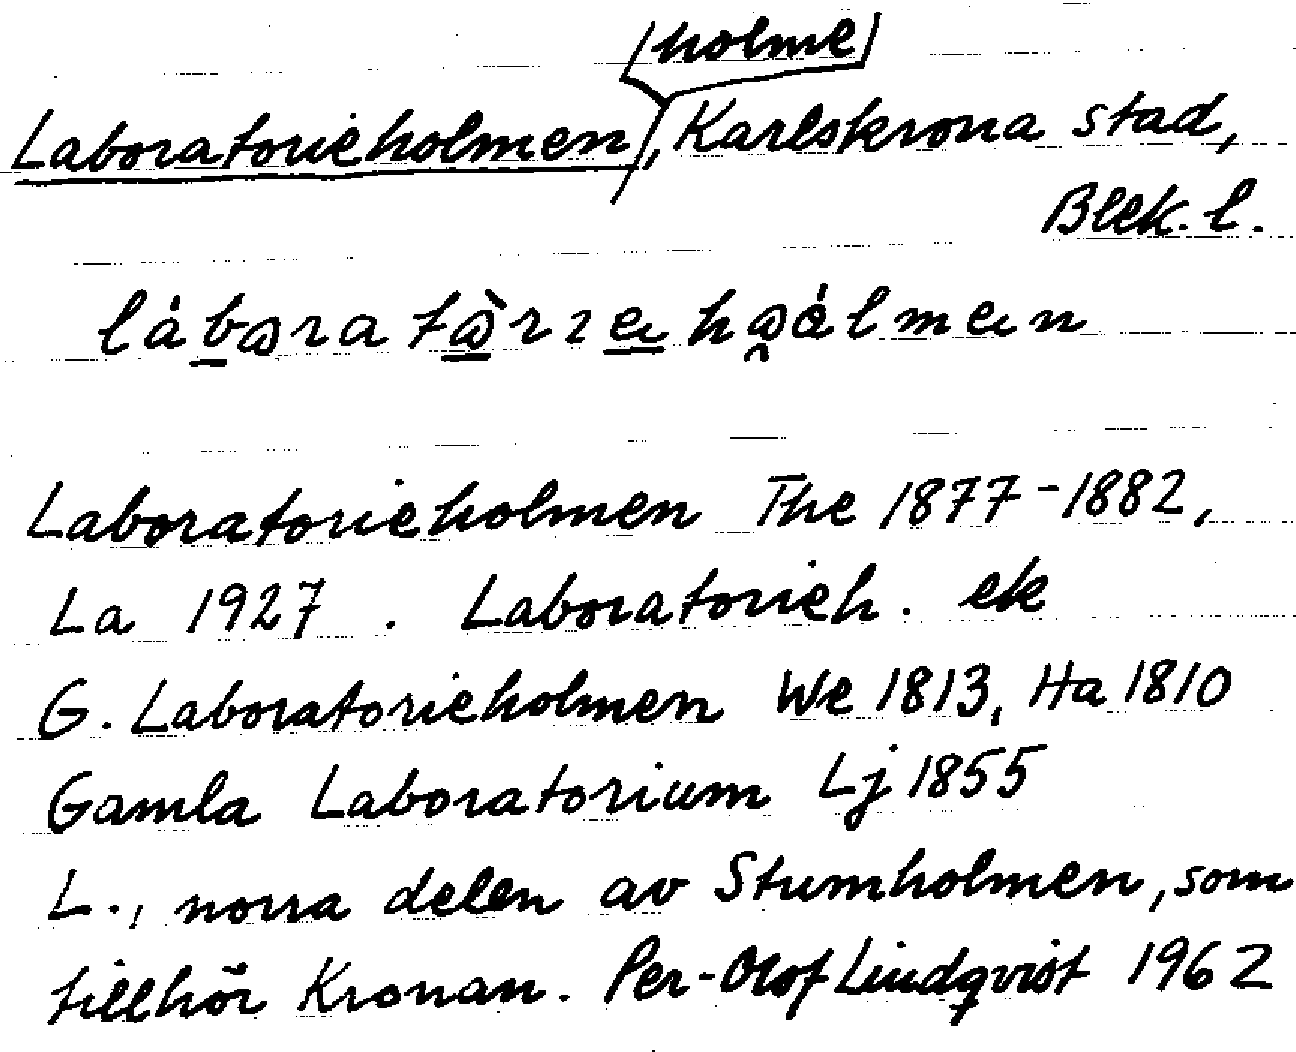 (holme)
Laboratorieholmen, Karlskrona stad,
Blek. l.
Laboratorieholmen The 1877-1882,
La 1927. Laboratorieh. ek
G. Laboratorieholmen We 1813, Ha 1810
Gamla Laboratorium Lj 1855
L., norra delen av Stumholmen, som
tillhör Kronan. Per-Olof Lindqvist 1962